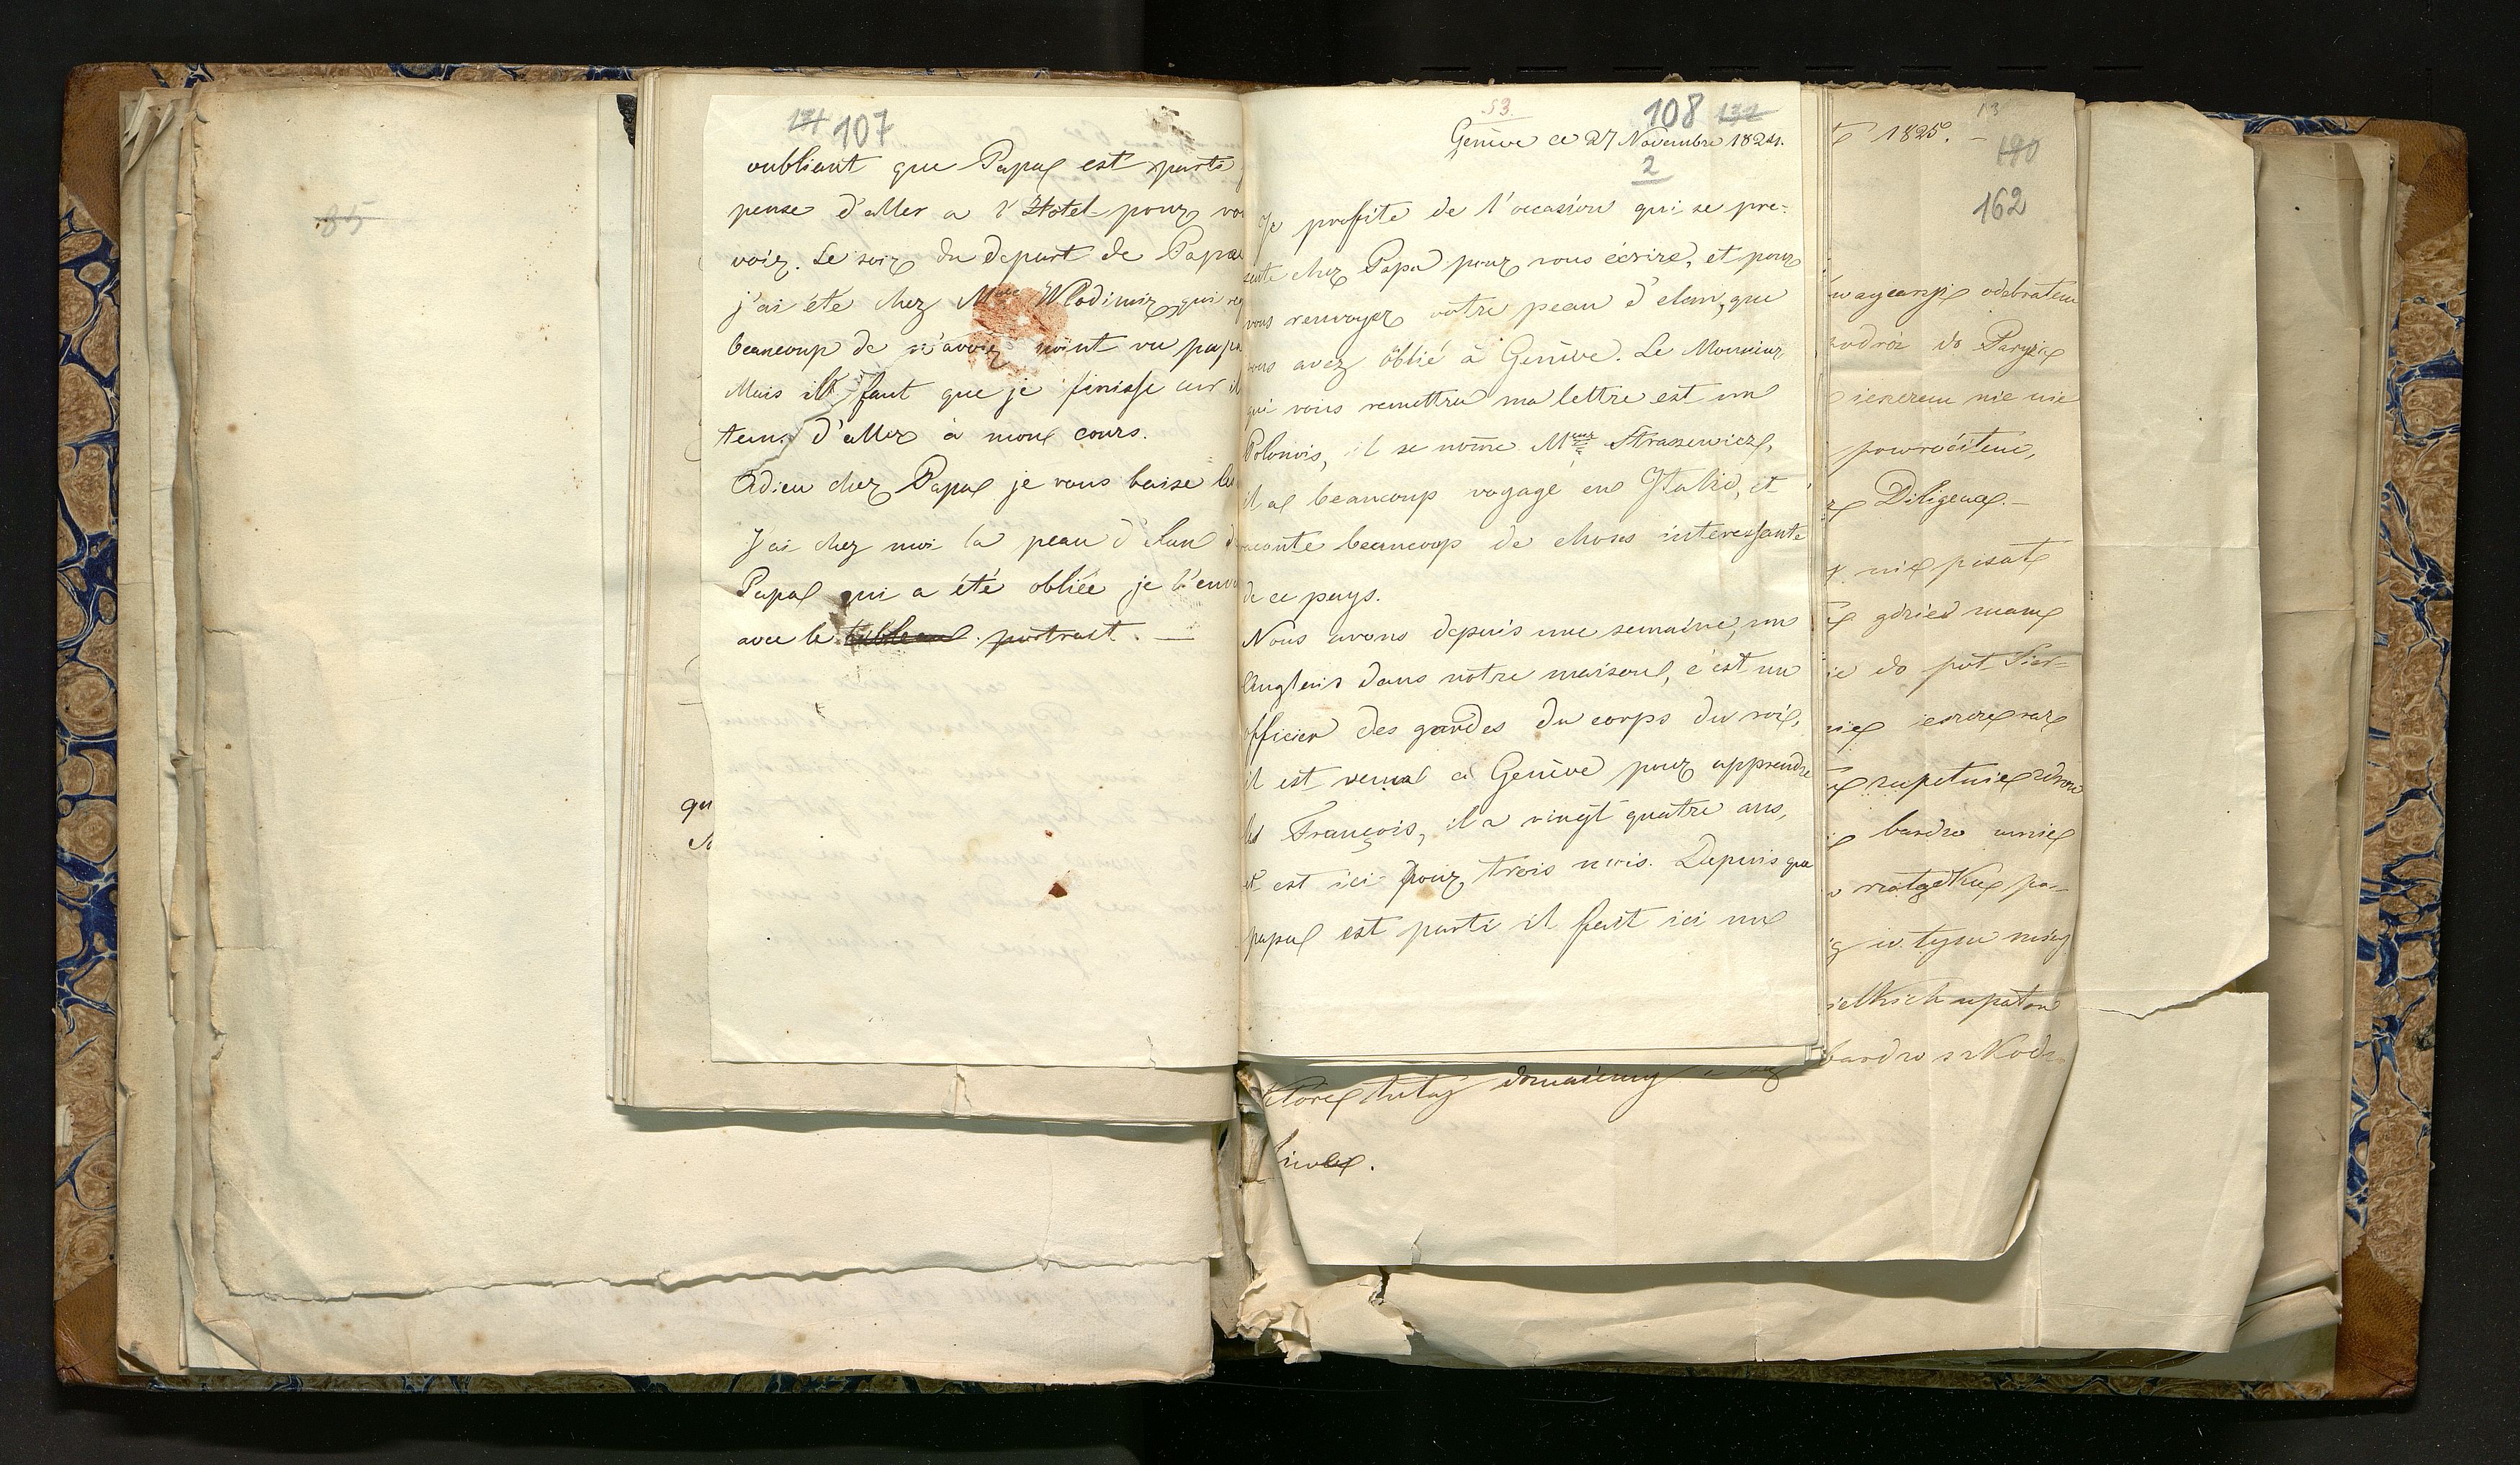 85
131 107
oubliant que Papa est parti
pense d'aller a l'Hotel pour vo
voir. Le soir du depart de Papa
j'ai été chez Mme Wlodimir, qui re
beaucoup de n'avoir point vu papa
Mais il faut que je finisse car il
tems d'aller à mon cours.
Adieu cher Papa je vous baise le
J'ai chez moi la peau d'elan d
Papa qui a été obliée je l'env
avec le tableau portrait. —
qu
53.
108 132
Genève ce 27 Novembre 1824.
2
Je profite de l'occasion qui se pre-
sente cher Papa pour vous écrire, et pour
vous renvoyer votre peau d'elan, que
vous avez oblié à Genève. Le Monsieur
qui vous remettra ma lettre est un
Polonois, il se nome Mr Straszewicz,
il a beaucoup voyagé en Italie, et
raconte beaucoup de choses interessante
de ce pays.
Nous avons depuis une semaine, un
Anglois dans notre maison, c'est un
officier des gardes du corps du roi,
il est venu à Genève pour apprendre
le François, il a vingt quatre ans,
et est ici pour trois mois. Depuis que
papa est parti il fait ici un
13
1825. —
180
162
odebratem
podróż do Paryża
ieszcze nie nie
powróciłem,
Diligence. —
nie pisat
gdzie mam
ie do pót Sier-
zupetnie zdrow
bardzo
w tym
bardzo szkod
Które tutaj